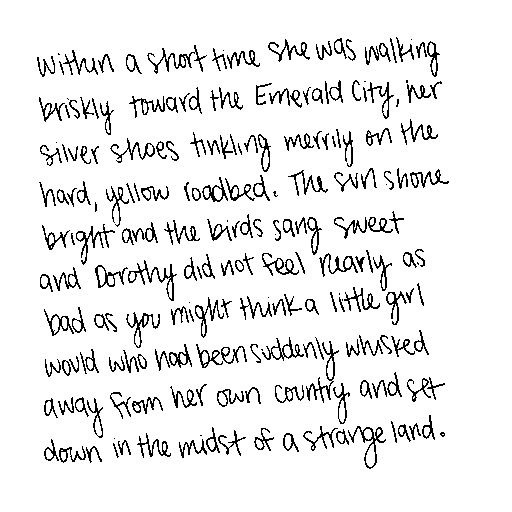 Within a short time she was walking
briskly toward the Emerald City, her
silver shoes tinkling merrily on the
hard, yellow roadbed. The sun shone
bright and the birds sang sweet
and Dorothy did not feel nearly as
bad as you might think a little girl
would who had been suddenly whisked
away from her own country and set
down in the midst of a strange land.